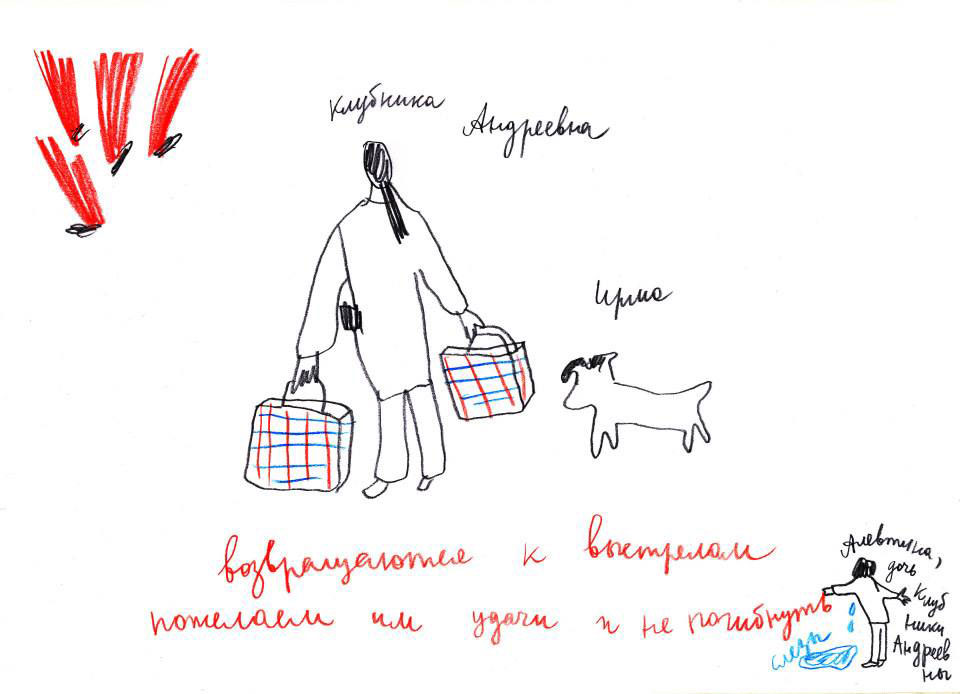 Клубника
Андреевна
Ирма
возвращаются к выстрелам
пожелаем им удачи и не погибнуть
Алевтина,
дочь
Клуб
ники
Андреев
ны
слезы